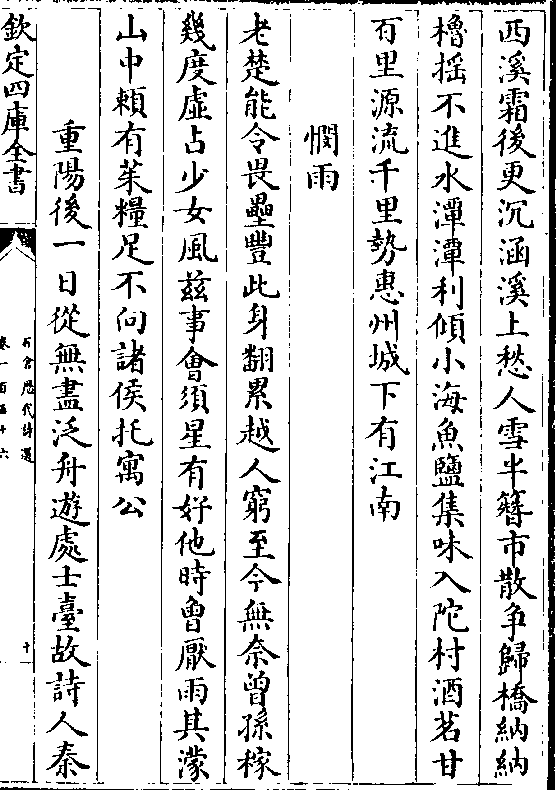 西溪霜後更沉涵溪上愁人雪半簪市散爭歸橋納納
櫓揺不進水潭潭利傾小海魚鹽集味入陀村酒茗甘
百里源流千里勢惠州城下有江南
憫雨
老楚能令畏壘豐此身翻累越人窮至今無奈曾孫稼
幾度虛占少女風茲事會須星有好他時曾厭雨其濛
山中頼有茱糧足不向諸侯托寓公
重陽後一日從無盡泛舟遊處士臺故詩人秦
欽定四庫全書
石倉歷代詩選
卷一百五十六
十